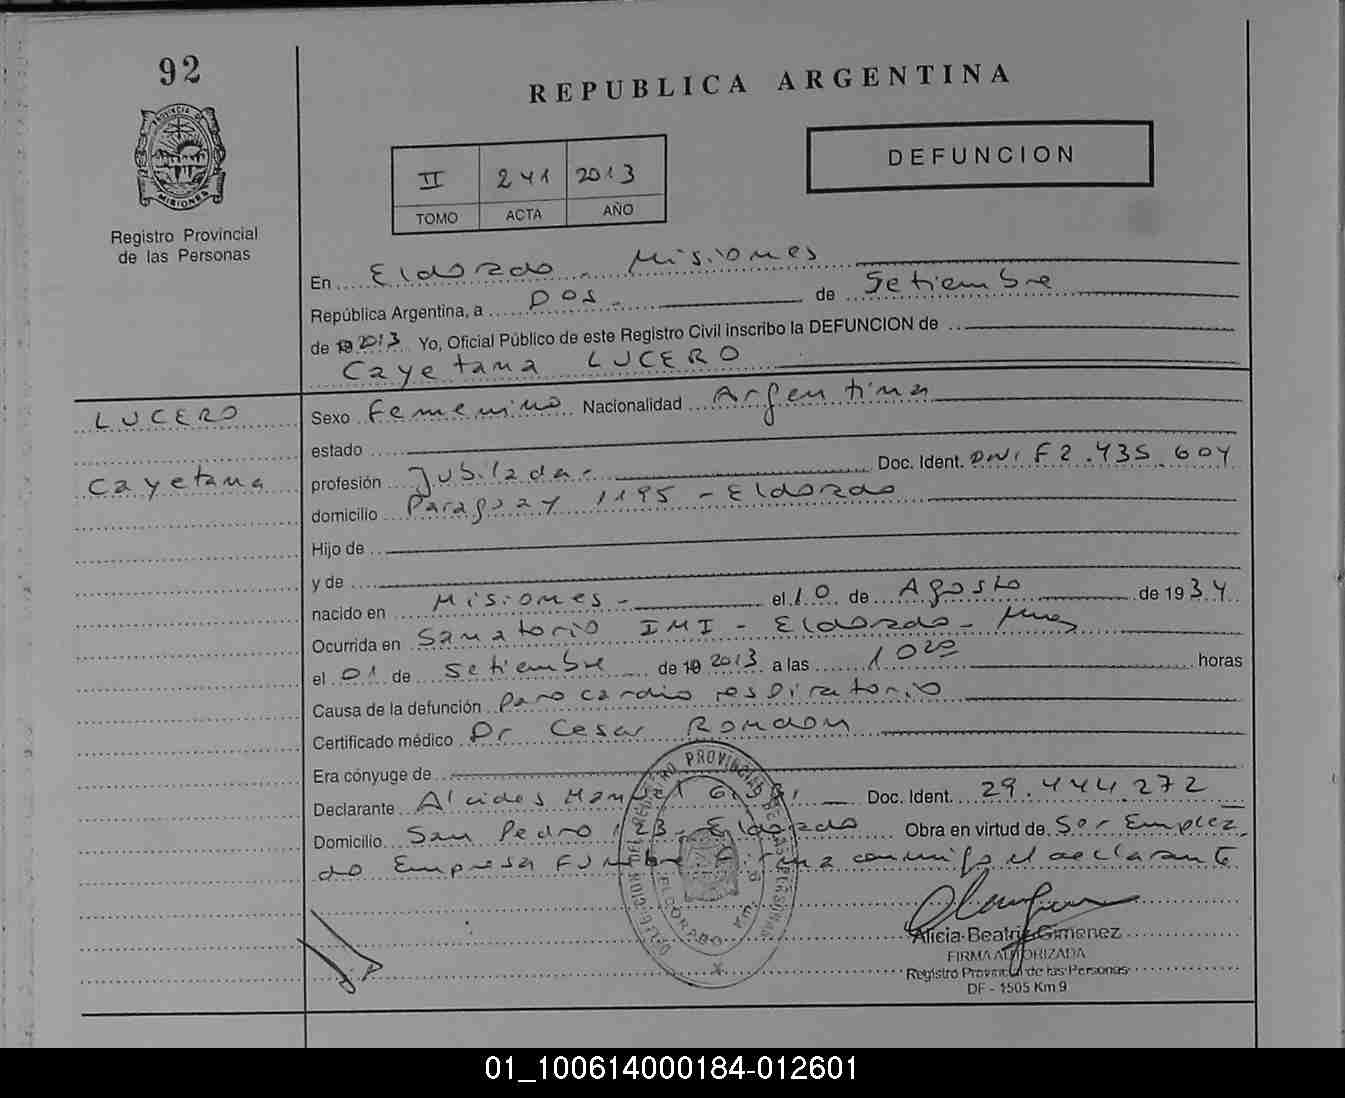 92
REPUBLICA ARGENTINA
PROVINCIA DE
MISIONES
Registro Provincial
de las Personas
DEFUNCION
II 241 2013
TOMO ACTA AÑO
En Eldorado - Misiones
República Argentina, a Dos - de Setiembre
de 19 2013 Yo, Oficial Público de este Registro Civil inscribo la DEFUNCION de
Cayetana LUCERO
LUCERO
Cayetana
Sexo Femenino Nacionalidad Argentina
estado
profesión Jubilada - Doc. Ident. DNI F2.435.604
domicilio Paraguay 1195 - Eldorado
Hijo de
y de
nacido en Misiones - el 10 de Agosto de 1934
Ocurrida en Sanatorio IMI - Eldorado - Mnes
el 01 de Setiembre de 19 2013 a las 1 020 horas
Causa de la defunción Paro cardio respiratorio
Certificado médico Dr Cesar Rondon
Era cónyuge de
Declarante Alcides Manuel Doc. Ident. 29.444.272
Domicilio San Pedro 123 - Eldorado Obra en virtud de Ser Emplea
do Empresa Funebre Firma conmigo el declarante
Alicia Beatriz Gimenez
FIRMA AUTORIZADA
Registro Provincial de las Personas
DF - 1505 Km 9
01_100614000184-012601